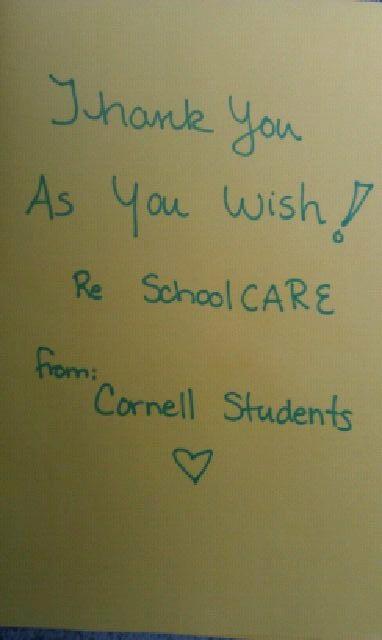 Thank You
As You Wish!
Re SchoolCARE
from:
Cornell Students